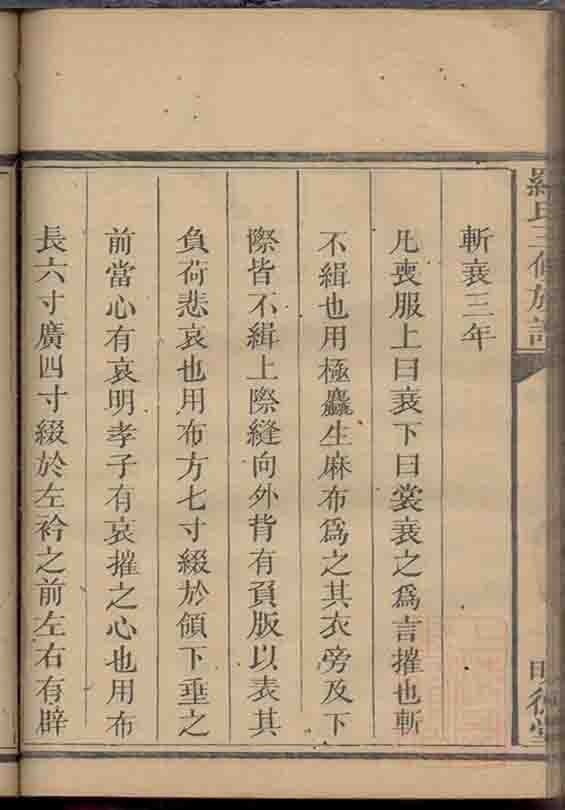 羅氏三修族譜
明德堂
斬衰三年
凡喪服上曰衰下曰裳衰之爲言摧也斬
不緝也用極麤生麻布爲之其衣旁及下
際皆不緝上際縫向外背有負版以表其
負荷悲哀也用布方七寸綴於領下垂之
前當心有哀明孝子有哀摧之心也用布
長六寸廣四寸綴於左衿之前左右有辟